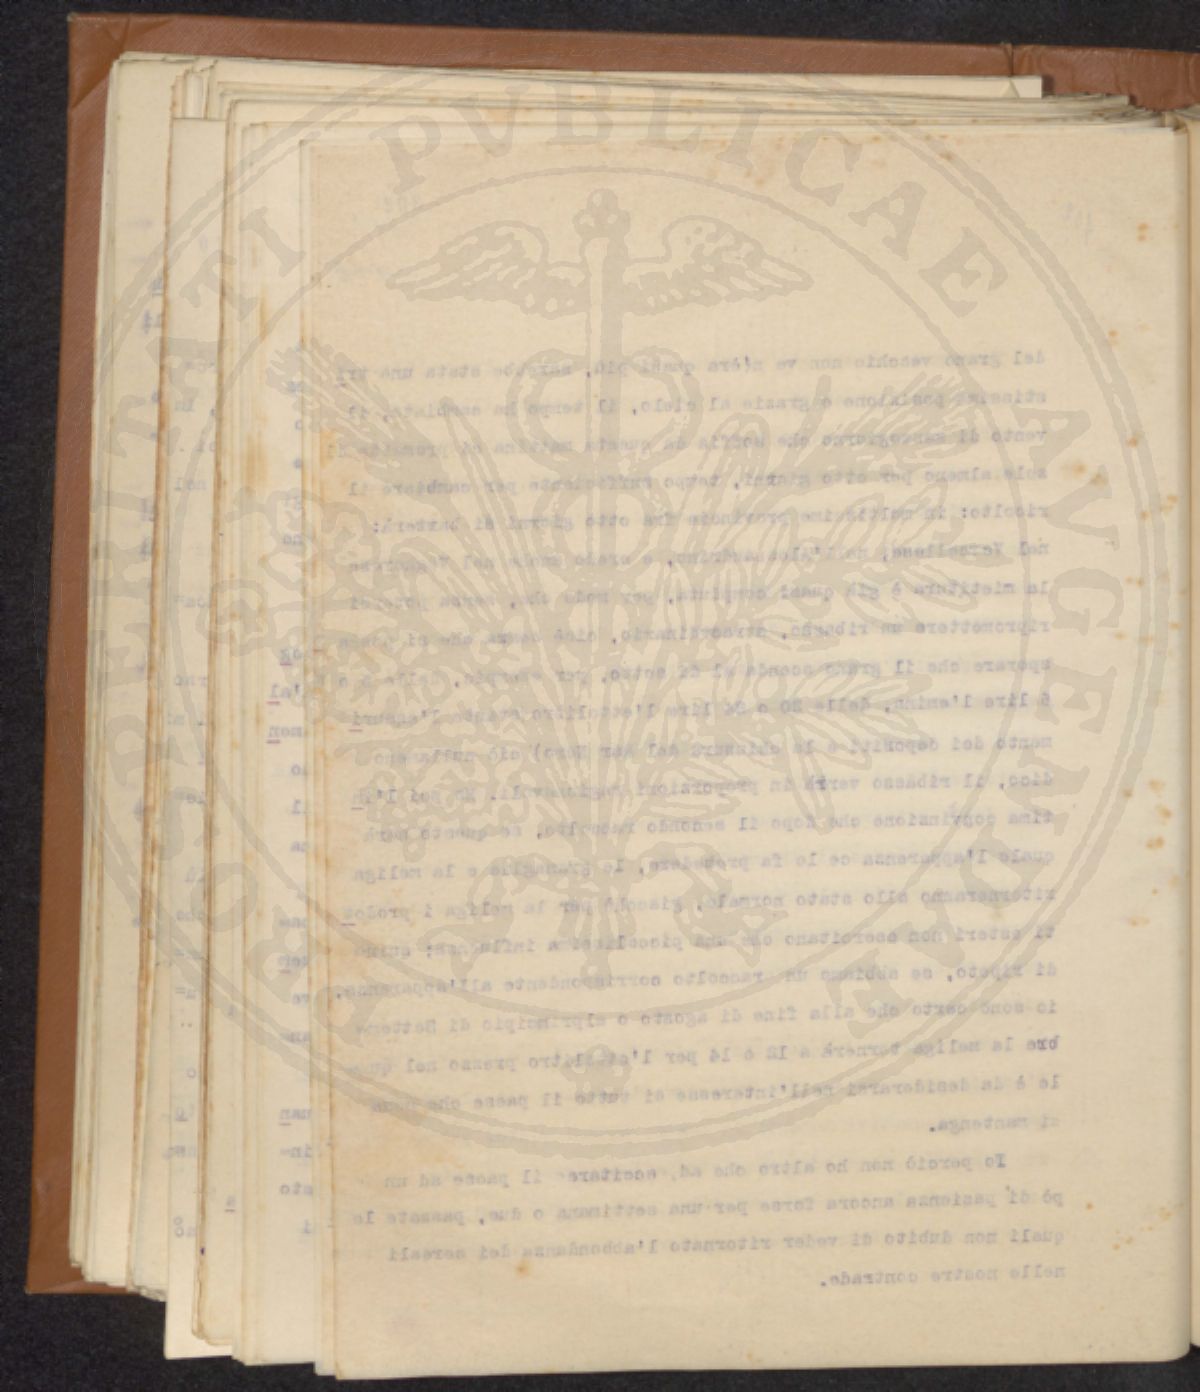 PROSPERITATI PVBLICAE AVGENDAE
del grano vecchio non ve n'era quasi più, sarebbe stata una tri
stissima posizione e grazie al cielo, il tempo ha cambiato, il
vento di mezzogiorno che soffia da questa mattina ci promette il
sole almeno per otto giorni, tempo sufficiente per cambiare il
ricolto: in moltissime provincie fra otto giorni si batterà:
nel Vercellese, nell'Alessandrino, e credo anche nel Vogherese
la mietitura è già quasi compiuta, per modo che, senza poterci
ripromettere un ribasso, straordinario, cioè senza che si possa
sperare che il grano scenda al di sotto, per esempio, delle 5 o
6 lire l'emina, delle 20 o 24 lire l'ettolitro stante l'esauri
mento dei depositi e la chiusura del Mar Nero) ciò nullameno
dico, il ribasso verrà in proporzioni ragionevoli. Ho poi l'in
tima convinzione che dopo il secondo raccolto, se questo sarà
quale l'apparenza ce lo fa prevedere, le granaglie e la meliga
ritorneranno allo stato normale, giacchè per la meliga i prodot
ti esteri non esercitano che una piccolissima influenza; quin
di ripeto, se abbiamo un raccolto corrispondente all'apparenza,
io sono certo che alla fine di agosto o alprincipio di Settem
bre la meliga tornerà a 12 o 14 per l'ettolitro prezzo nel qua
le è da desiderarsi nell'interesse di tutto il paese che essa
si mantenga.
Io perciò non ho altro che ad, eccitare il paese ad un
pò di pazienza ancora forse per una settimana o due, passate le
quali non dubito di veder ritornato l'abbondanza dei cereali
nelle nostre contrade.